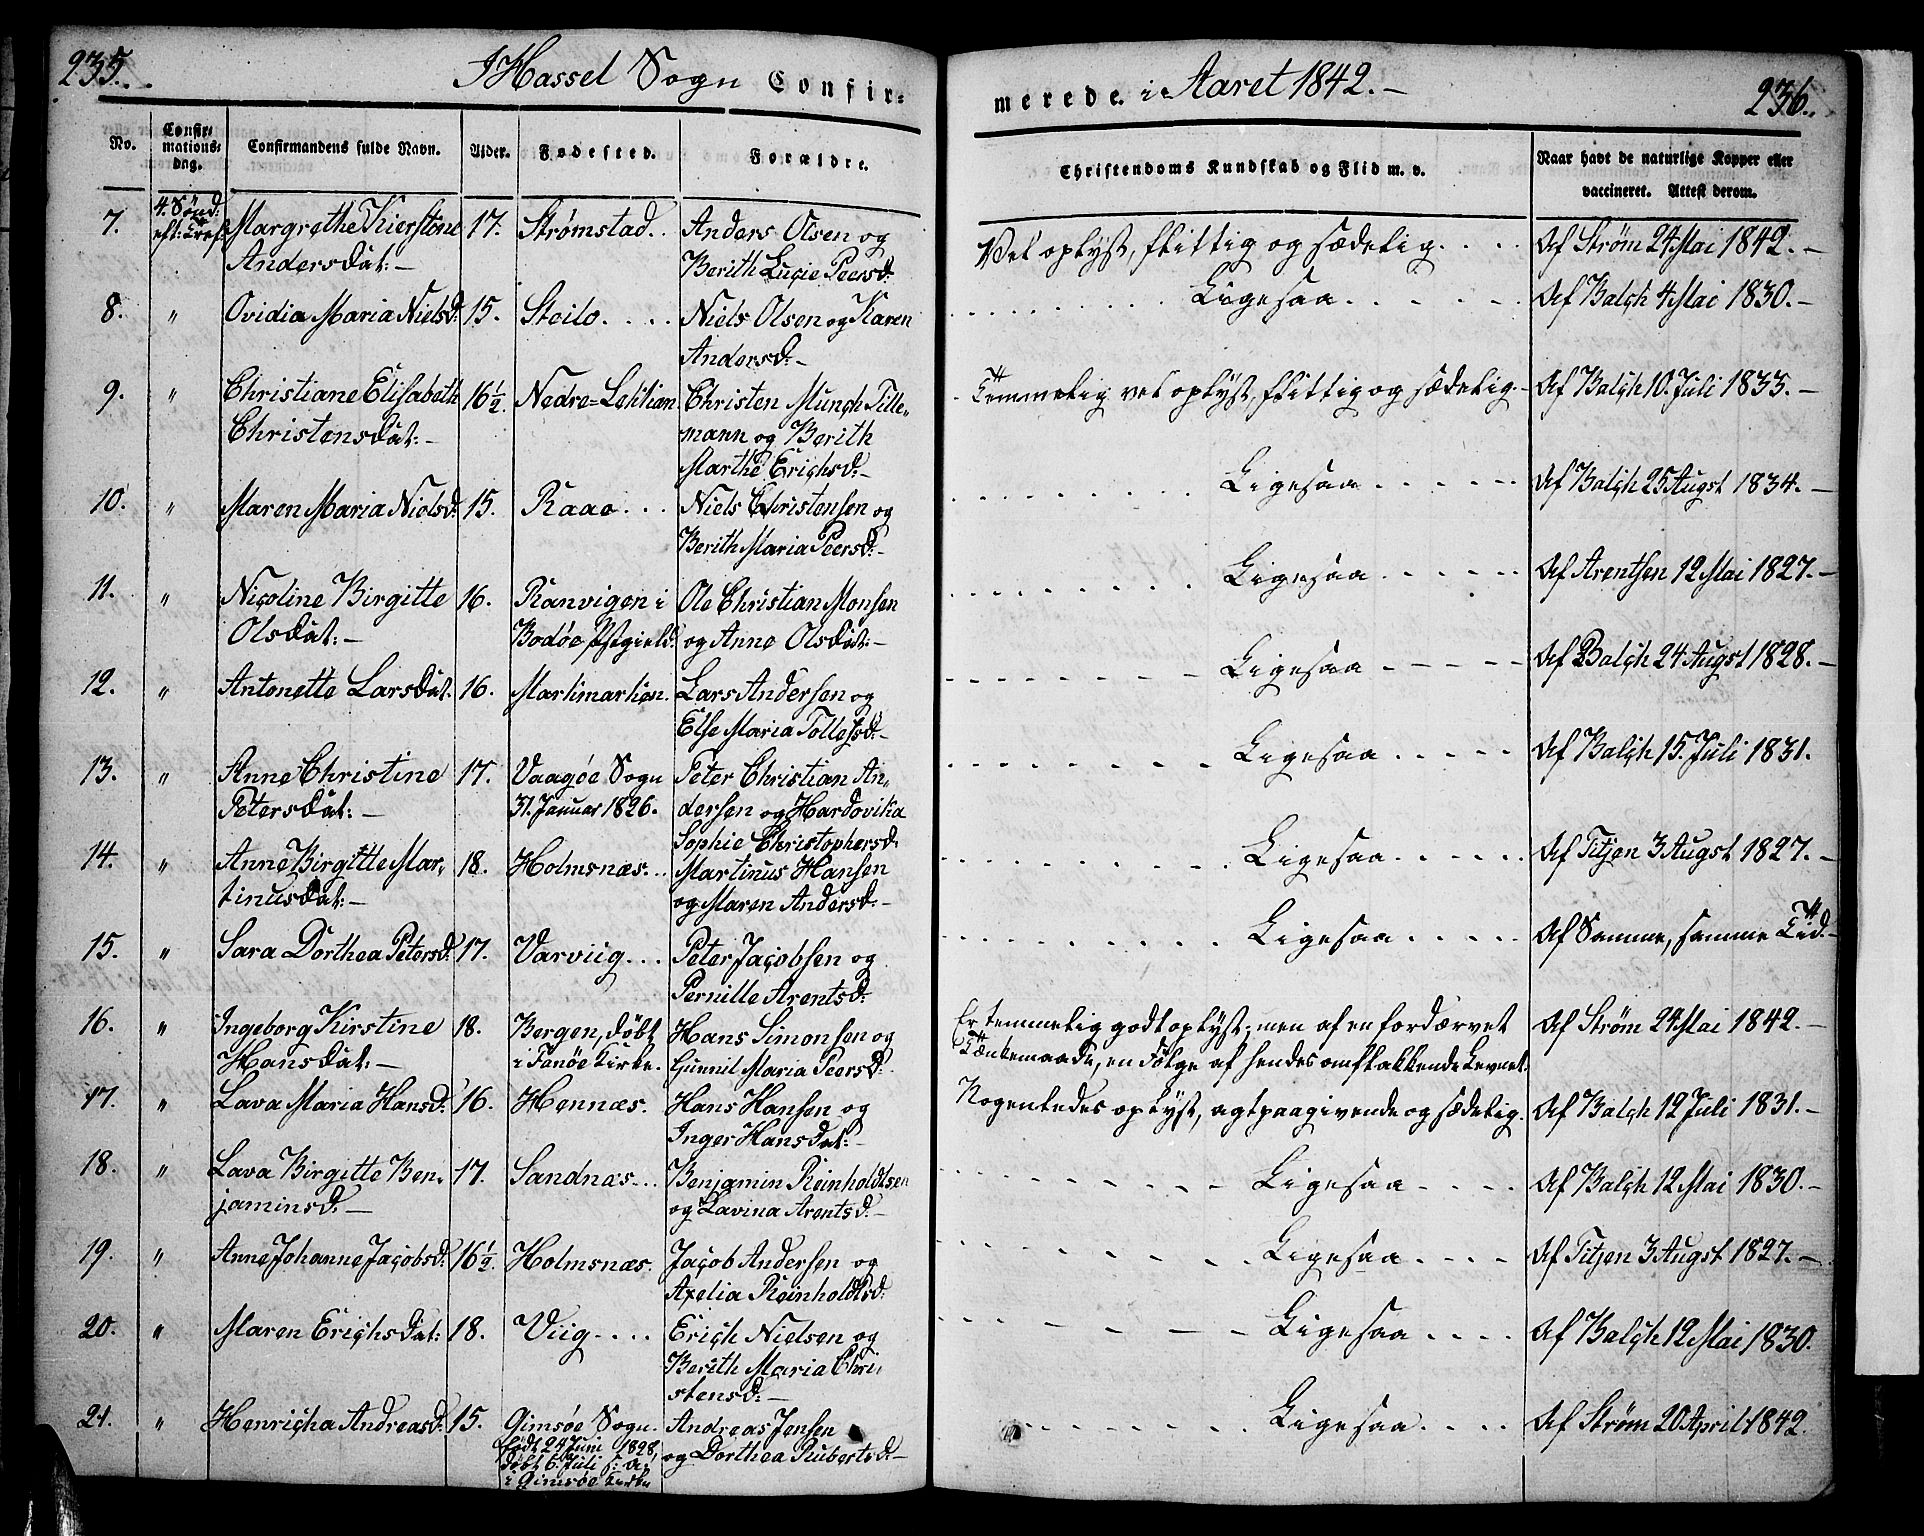 235.
I Hassel Sogn Confir-
merede i Aaret 1842.-
236.
No.
Confir-
mations-
dag.
Confirmandens fulde Navn.
Alder.
Fødested.
Forældre.
Christendoms Kundskab og Flid m. v.
Naar havt de naturlige Kopper eller
vaccineret. Attest derom.
7. 4. Sønd: Margrethe Kierstine 17. Strømstad.. Anders Olsen og Vel oplyst, flittig og sædelig.... Af Strøm 24 Mai 1842.-
eft: Tref: Andersdat:- Berith Lucie Peersd:
8. " Ovidia Maria Nielsd: 15. Steilo.... Niels Olsen og Karen Ligesaa..... Af Balch 4 Mai 1830.-
Andersd:-
9. " Christiane Elisabeth 16½. Nedre=Leklien Christen Munch Tille- Temmelig vel oplyst, flittig og sædelig.- Af Balch 10. Juli 1835.-
Christensdat:- mann og Berith
Marthe Erichsd:-
10. " Maren Maria Nielsd: 15. Raae... Niels Christensen og Ligesaa..... Af Balch 25 Augst 1834.-
Berith Maria Peersd:-
11. " Nicoline Birgitte 16. Ranvigen i Ole Christian Monsen Ligesaa..... Af Arentsen 12 Mai 1827.-
Olsdat:- Bodøe Pstgield. og Anne Olsdat:-
12. " Antonette Larsdat: 16. Lars Andersen og Ligesaa..... Af Balch 24 Augst 1828.-
Else Maria Tollefsd:-
13. " Anne Christine 17. Vaagøe Sogn Peter Christian An- Ligesaa..... Af Balch 15. Juli 1831.
Petersdat:- 31. Januar 1826. dersen og Hardovika
Sophie Christophersd:
14. " Anne Birgitte Mar- 18. Holmsnæs... Martinus Hansen Ligesaa..... Af Titjen 3 Augst 1827.-
tinusdat:- og Maren Andersd:-
15. " Sara Dorthea Petersd: 17. Varviig... Peter Jacobsen og Ligesaa..... Af Samme, samme Tid.-
Pernille Arentsd:
16. " Ingeborg Kirstine 18. Bergen, døbt Hans Simonsen og Er temmelig godt oplyst; men af en fordærvet Af Strøm 24 Mai 1842.-
Hansdat:- i Fanøe Kirke. Gunnil Maria Peersd: Tænkemaade, en Følge af hendes omflakkende Levnet.
17. " Lava Maria Hansd: 16. Hennæs. Hans Hansen og Nogenledes oplyst, agtpaagivende og sædelig. Af Balch 12 Juli 1831.-
Inger Hansdat:-
18. " Lava Birgitte Ben- 17. Sandnæs... Benjamin Reinholdtsen Ligesaa.... Af Balch 12 Mai 1830.-
jaminsd:- og Lavina Arentsd:-
19. " Anne Johanne Jacobsd: 16½. Holmsnæs. Jacob Andersen og Ligesaa.... Af Titjen 3 Augst 1827.-
Axelia Reinholdtsd:
20. " Maren Erichsdat: 18. Viig.... Erich Nielsen og Ligesaa.... Af Balch 12 Mai 1830.
Berith Maria Chri-
stensd:-
21. " Henricha Andreasd: 15. Gimsøe Sogn. Andreas Jensen Ligesaa.... Af Strøm 20 April 1842.
født 24 Juni 1828, og Dorthea Rubertsd:-
døbt 6. Juli s: A:
i Gimsøe Kirke